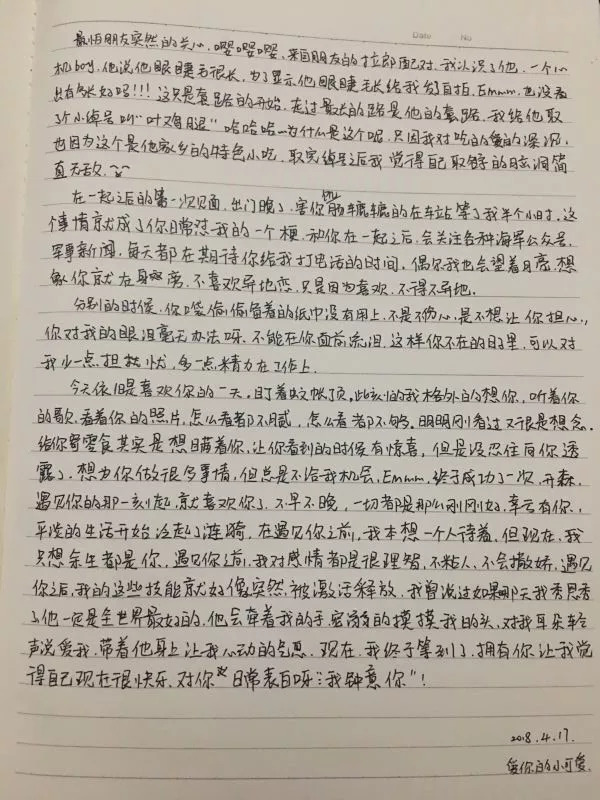 Date No
最怕朋友突然的关心,嘤嘤嘤嘤,来自朋友的拉郎配对,我认识了他,一个心
机boy,他说他眼睫毛很长,为了显示他眼睫毛长给我发了自拍,Emmm,也没看
出有多长好吗!!!这只是套路的开始,走过最长的路是他的套路,我给他取
了个小绰号叫"叶鸡腿"哈哈哈-为什么是这个呢,只因我对吃的爱的深沉,
也因为这个是他家乡的特色小吃,取完绰号之后我觉得自己取绰的脑洞简
直无敌。
在一起之后的第一次见面,出门晚了,害你饥肠辘辘的在车站等了我半个小时,这
事情就成了你日常怼我的一个梗,和你在一起之后,会关注各种海军公众号,
军事新闻,每天都在期待你给我打电话的时间,偶尔我也会望着月亮,想
象你就在身旁,不喜欢异地恋,只是因为喜欢,不得不异地。
分别的时候,你偷偷备着的纸巾没有用上,不是不伤心,是不想让你担心,
你对我的眼泪毫无办法呀,不能在你面前流泪,这样你不在的日子里,可以对
我少一点担扰忧,多一点精力在工作上
今天依旧是喜欢你的一天,盯着蚊帐顶,此刻的我格外的想你,听着你
的歌,看着你的照片,怎么看都不腻,怎么看都不够,明明刚看过又很是想念。
给你寄零食其实是想瞒着你,让你看到的时候有惊喜,但是没忍住向你透
露了,想为你做很多事情,但总是不给我机会,Emmm,终于成功了一次,开森,
遇见你的那一刻起,就喜欢你了,不早不晚,一切都是那么刚刚好,幸亏有你,
平淡的生活开始泛起了涟漪,在遇见你之前,我本想一个人待着,但现在,我
只想余生都是你,遇见你之前,我对感情都是很理智,不粘人,不会撒娇,遇见
你之后,我的这些技能就好像突然被激活释放,我曾说过如果那天我秀恩秀
了他一定是全世界最好的,他会牵着我的手,宠溺的摸摸我的头,对我耳朵轻
声说爱我,带着他身上让我心动的气息,现在,我终于等到了,拥有你让我觉
得自己现在很快乐,对你"日常表白呀:我钟意你"!
2018.4.17.
爱你的小可爱.